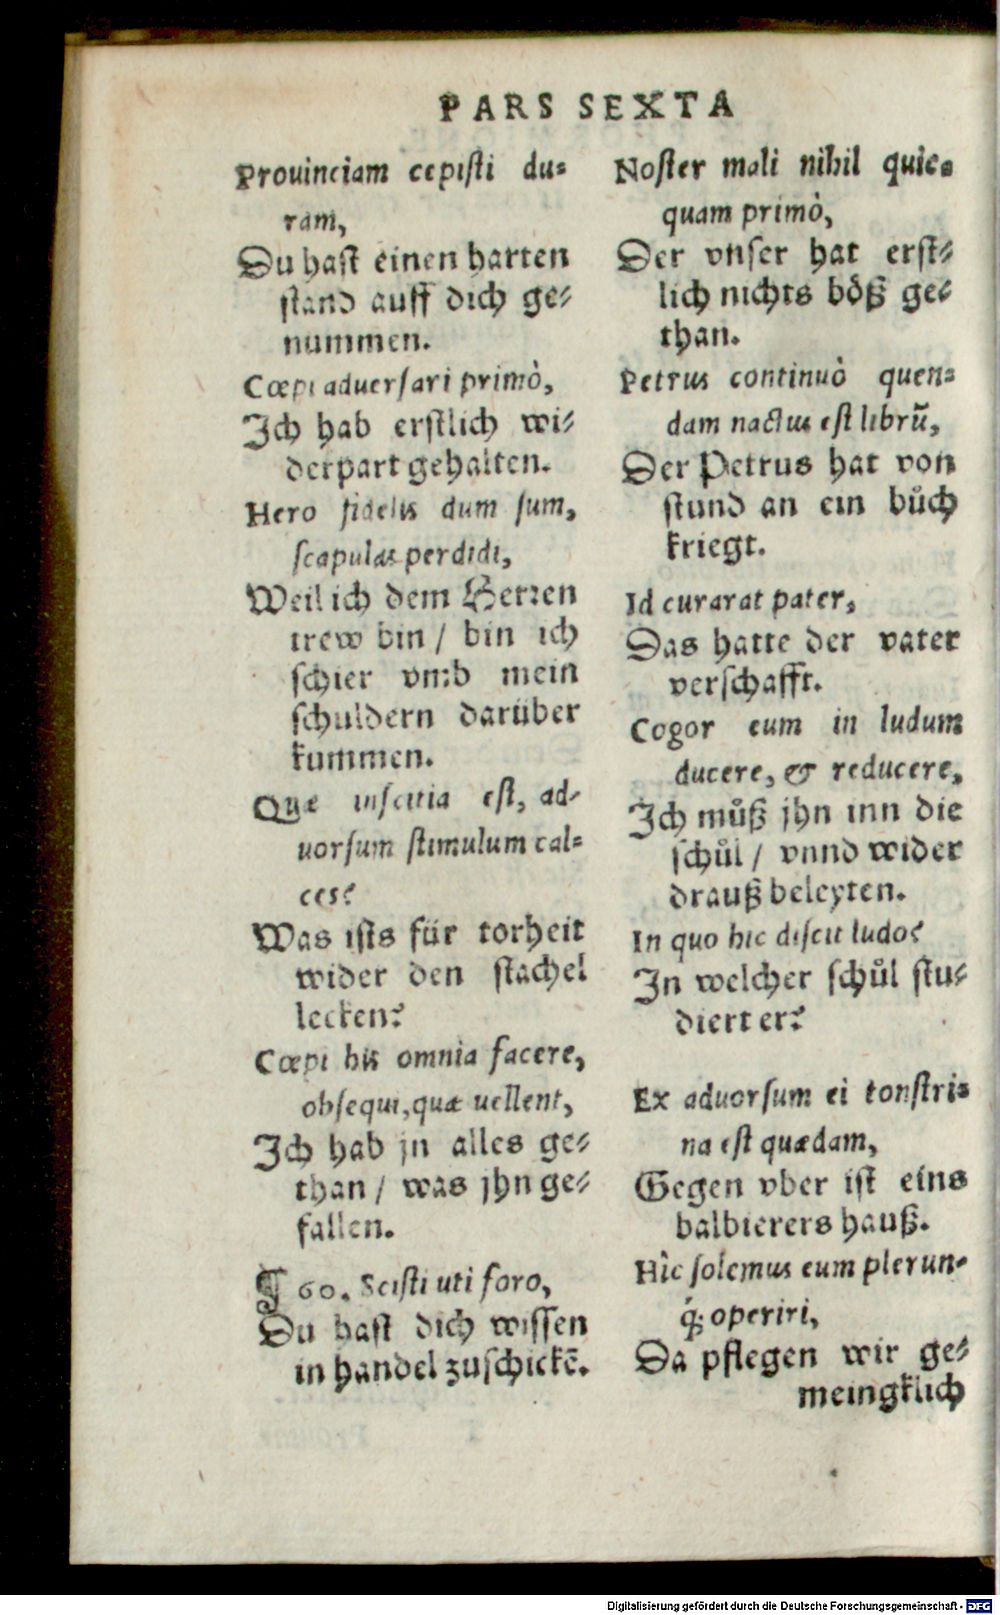 PARS SEXTA
Prouinciam cepisti du-
ram,
Du hast einen harten
stand auff dich ge-
nummen.
Cœpi aduersari primò,
Ich hab erstlich wi-
derpart gehalten.
Hero fidelis dum sum,
scapulas perdidi,
Weil ich dem Herren
trew bin / bin ich
schier vmb mein
schuldern darüber
kummen.
Quæ inscitia est, ad-
uorsum stimulum cal-
ces?
Was ists für torheit
wider den stachel
lecken?
Cœpi his omnia facere,
obsequi, quæ uellent,
Ich hab jn alles ge-
than / was jhn ge-
fallen.
¶ 60. Scisti uti foro,
Du hast dich wissen
in handel zuschickē.
Noster mali nihil quic-
quam primò,
Der vnser hat erst-
lich nichts böß ge-
than.
Petrus continuò quen-
dam nactus est librū,
Der Petrus hat von
stund an ein bůch
kriegt.
Id curarat pater,
Das hatte der vater
verschafft.
Cogor eum in ludum
ducere, & reducere,
Ich můß jhn inn die
schůl / vnnd wider
drauß beleyten.
In quo hic discit ludo?
In welcher schůl stu-
diert er?
Ex aduorsum ei tonstri-
na est quædam,
Gegen vber ist eins
balbierers hauß.
Hîc solemus eum plerun-
q́; operiri,
Da pflegen wir ge-
meingklich
Digitalisierung gefördert durch die Deutsche Forschungsgemeinschaft - DFG